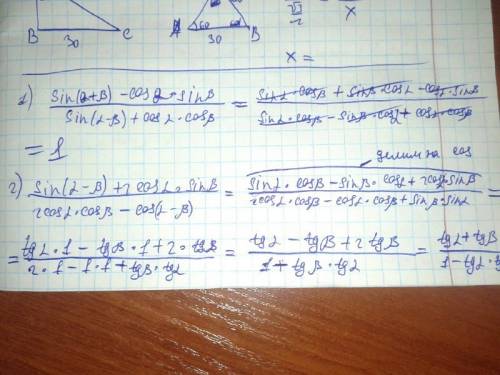 B 30 C
A 60 60 B
30
x
x =
1) (sin(α+β) - cosα · sinβ) / (sin(α-β) + cosα · cosβ) = (sinα · cosβ + sinβ · cosα - cosα · sinβ) / (sinα · cosβ - sinβ · cosα + cosα · cosβ) =
= 1
делим на cos
2) (sin(α-β) + 2cosα · sinβ) / (2cosα · cosβ - cos(α-β)) = (sinα · cosβ - sinβ · cosα + 2cosα · sinβ) / (2cosα · cosβ - cosα · cosβ + sinβ · sinα) =
= (tgα · 1 - tgβ · 1 + 2 · tgβ) / (2 · 1 - 1 · 1 + tgβ · tgα) = (tgα - tgβ + 2tgβ) / (1 + tgβ · tgα) = (tgα + tgβ) / (1 - tgα · t